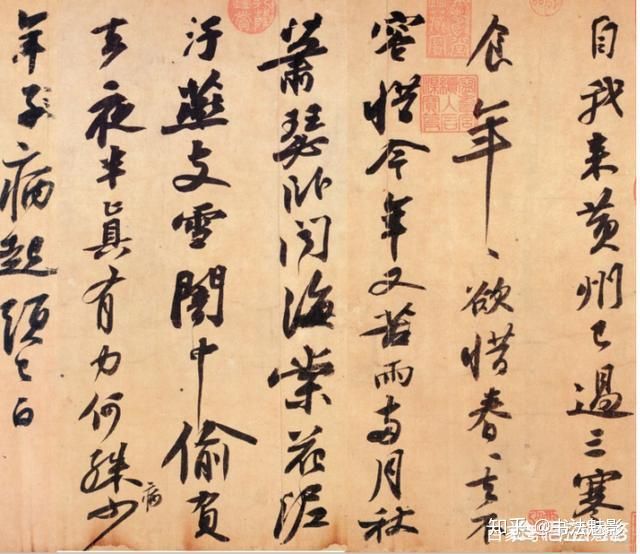 自我來黃州已過三寒
食年、欲惜春、去不
容惜今年又苦雨兩月秋
蕭瑟臥聞海棠花泥
汙燕支雪闇中偷負
去夜半真有力何殊少病
年子病起頭已白
知乎 @书法魅影